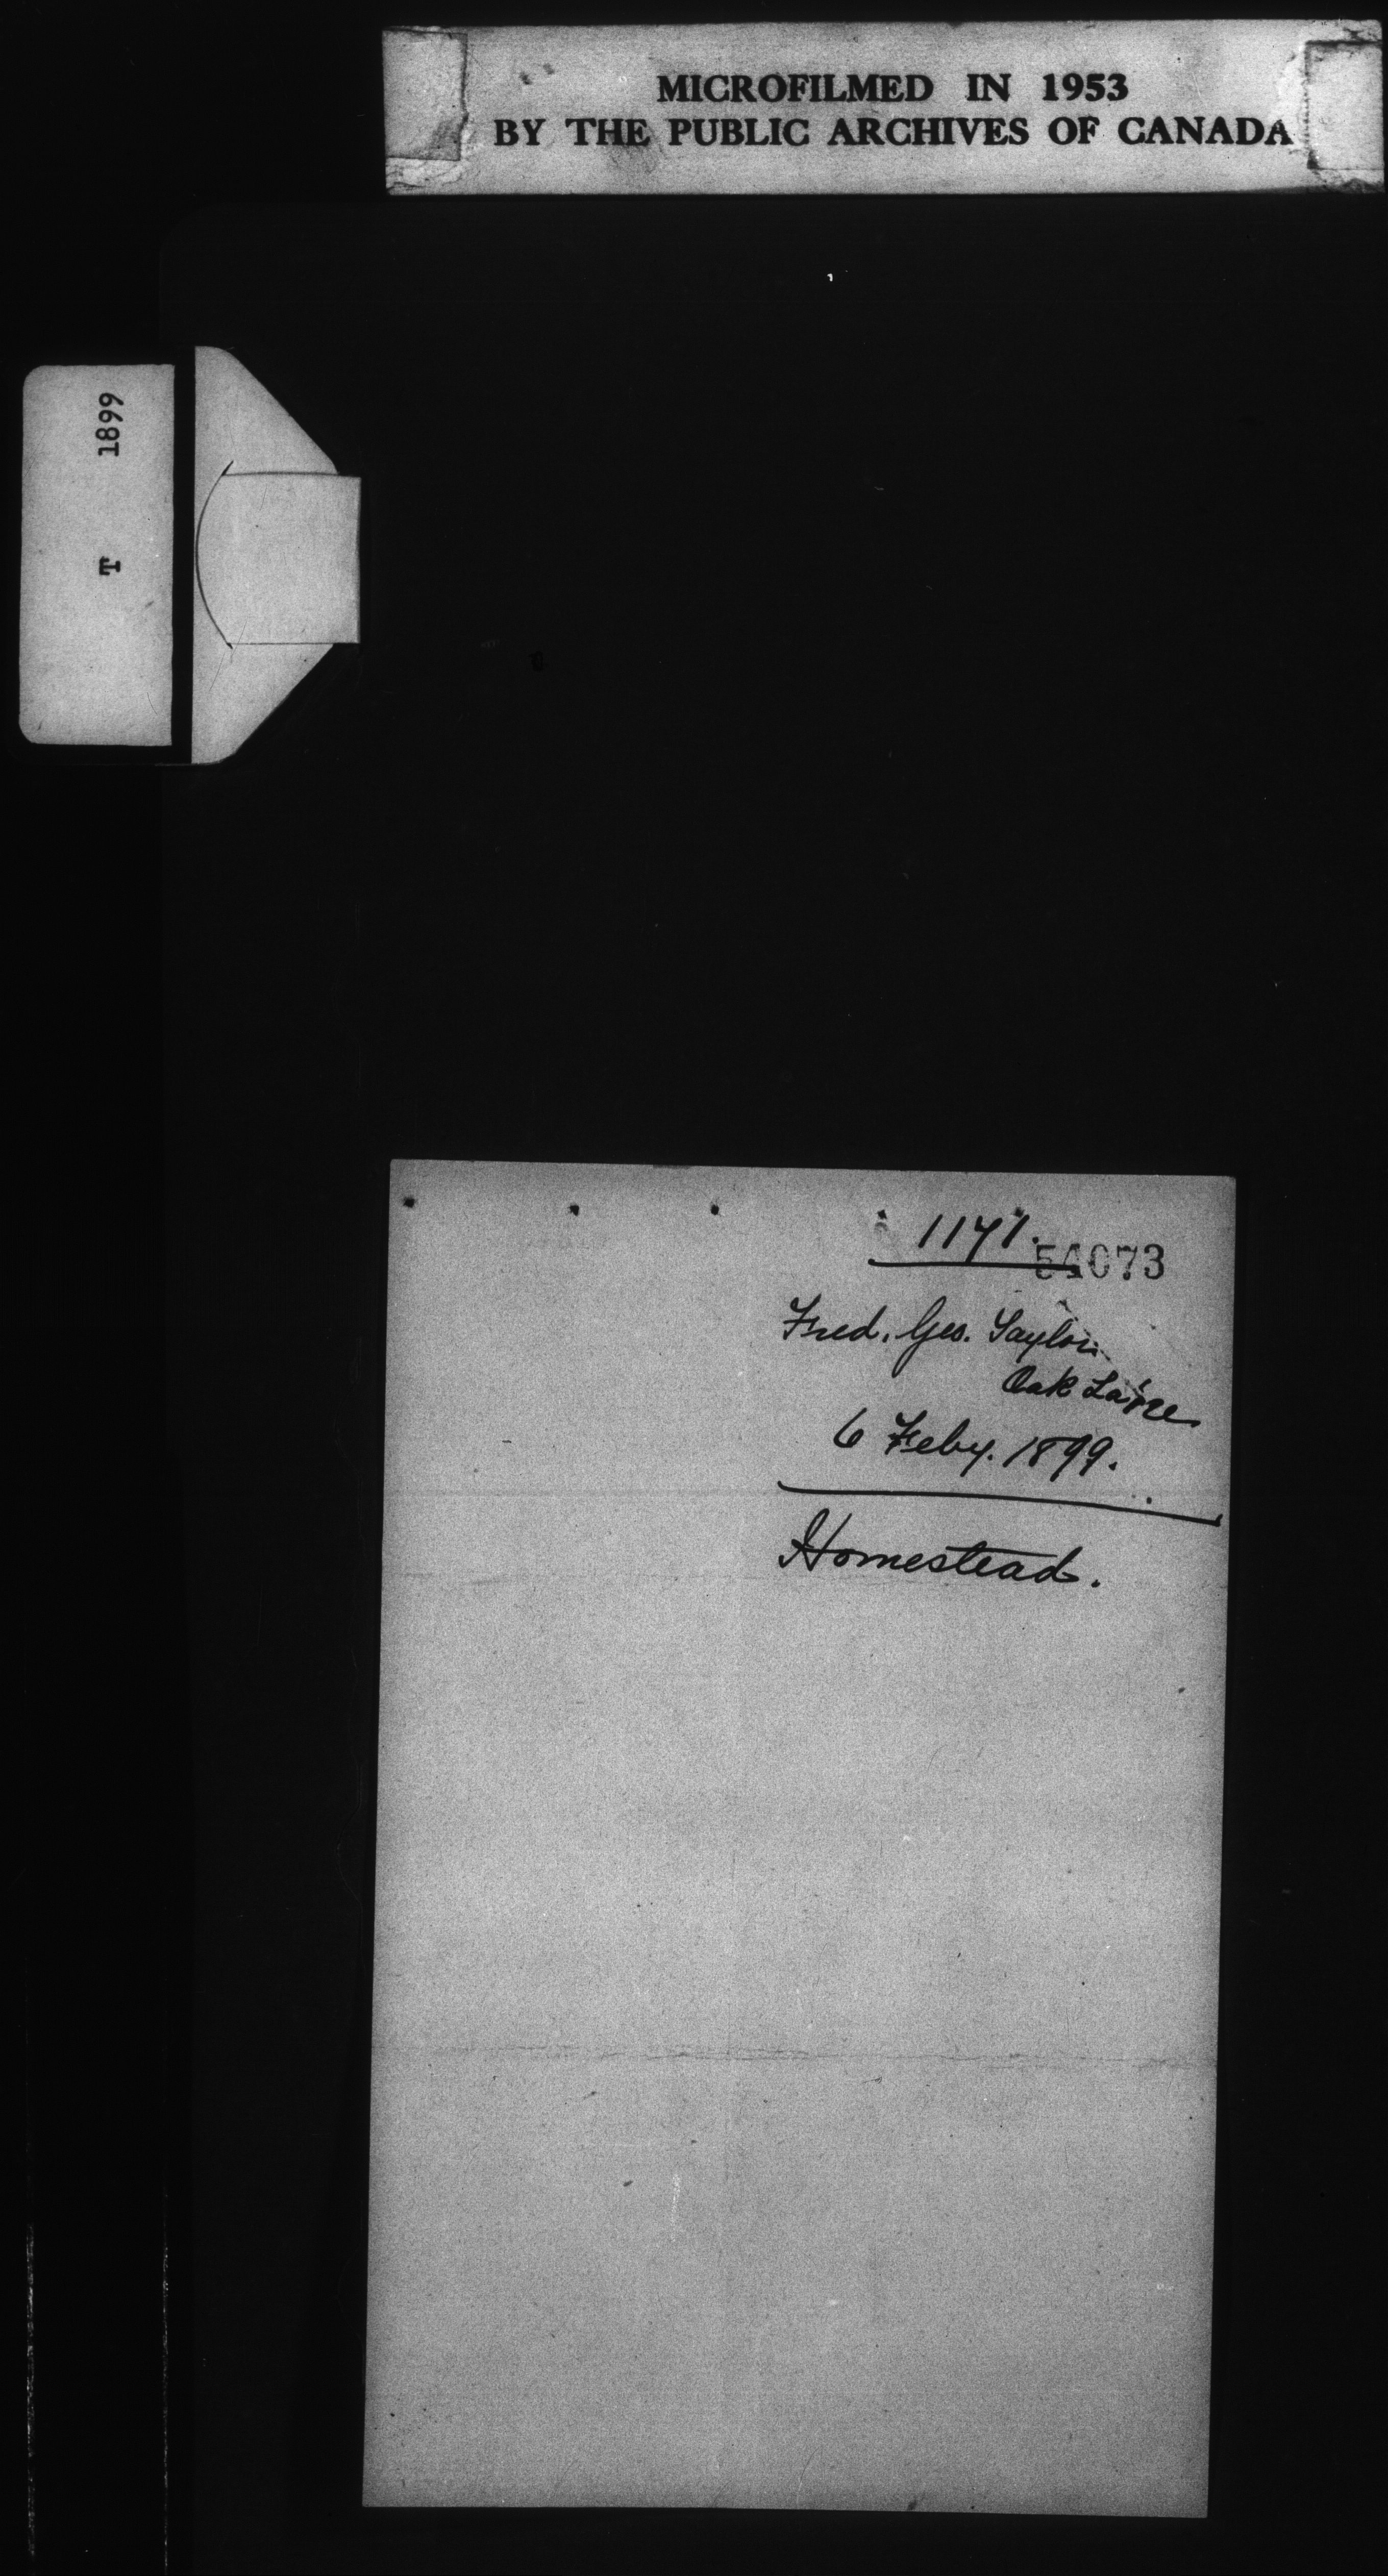 MICROFILMED IN 1953
BY THE PUBLIC ARCHIVES OF CANADA
T 1899
1141.
54073
Fred. Geo. Taylor
Oak Lake
6 Feby. 1899.
Homestead.